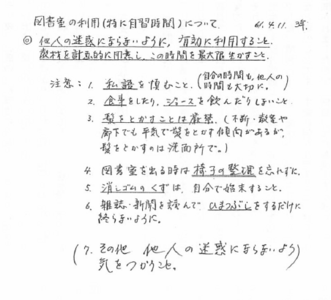 図書室の利用(特に自習時間)について 61.4.11. 3年.
◎ 他人の迷惑にならないように, 有効に利用すること.
教材を計画的に用意し, この時間を最大限生かすこと.
注意: 1. 私語を慎むこと. (自分の時間も, 他人の時間も大切に.)
2. 食事をしたり, ジュースを飲んだりしないこと.
3. 髪をとかすことは厳禁. (不断・教室や
廊下でも平気で髪をとかす傾向があるが,
髪をとかすのは洗面所で.)
4. 図書室を出る時は椅子の整理を忘れずに.
5. 消しゴムのくずは, 自分で始末すること.
6. 雑誌・新聞を読んでひまつぶしをするだけに
終らないように.
(7. その他 他人の迷惑にならないよう
気をつかうこと.)